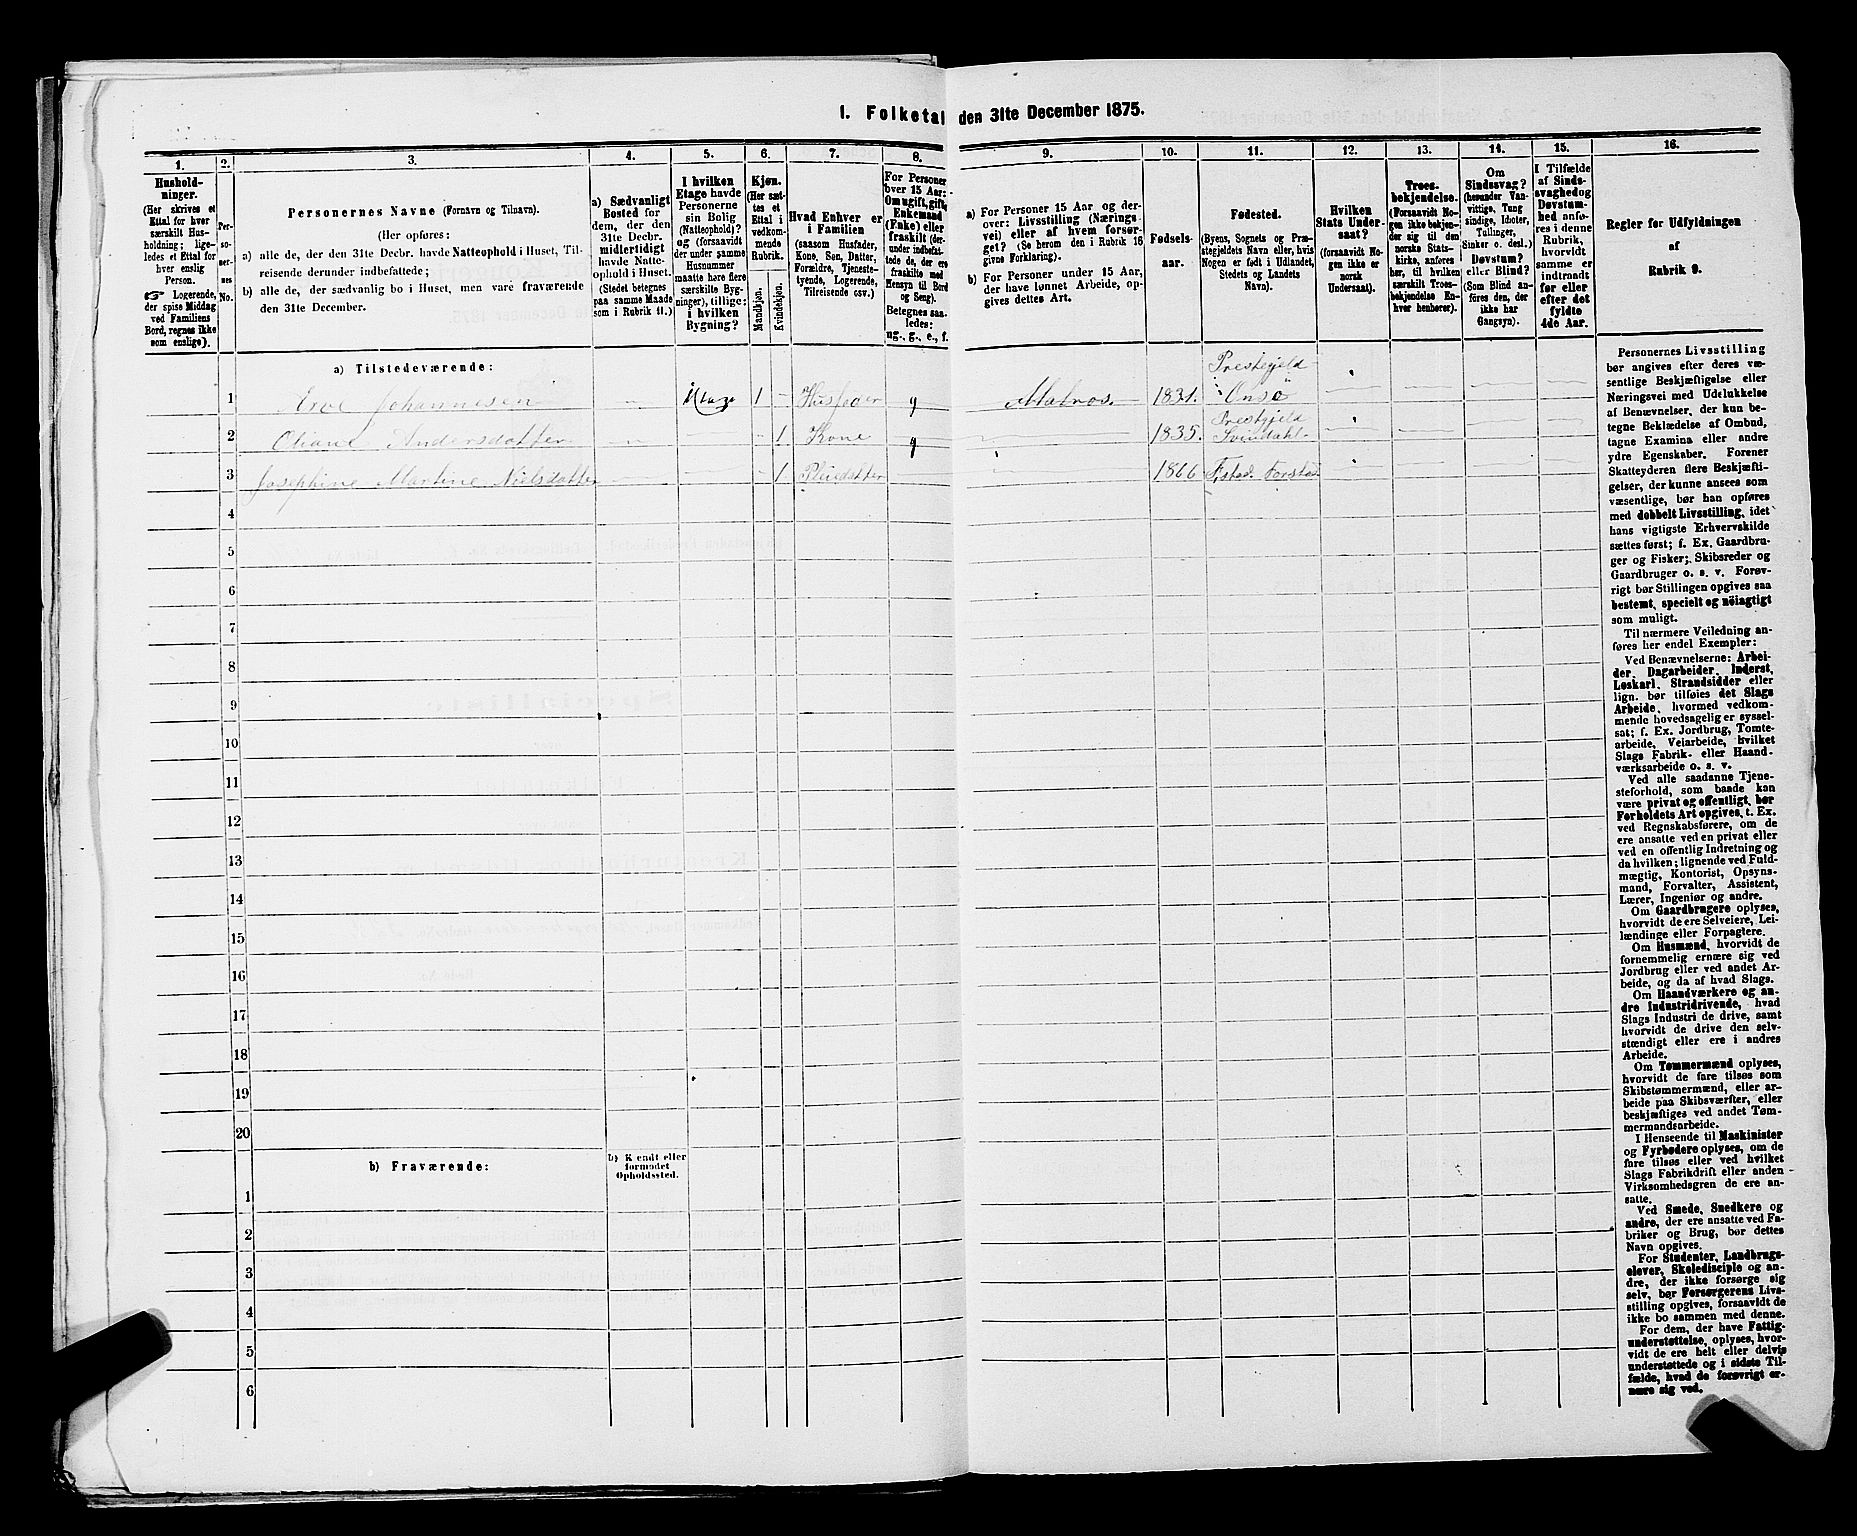 1. Folketal den 31te December 1875.
1. 2. 3. 4. 5. 6. 7. 8. 9. 10. 11. 12. 13. 14. 15. 16.
Hushold-
ninger.
(Her skrives et
Ettal for hver
særskilt Hus-
holdning; lige-
ledes et Ettal for
hver enslig
Person.
☞ Logerende,
der spise Middag
ved Familiens
Bord, regnes ikke
som enslige).
Per-
so-
ner-
nes
No.
Personernes Navne (Fornavn og Tilnavn).
(Her opføres:
a) alle de, der den 31te Decbr. havde Natteophold i Huset, Til-
reisende derunder indbefattede;
b) alle de, der sædvanlig bo i Huset, men vare fraværende
den 31te December.
a) Sædvanligt
Bosted for
dem, der den
31te Decbr.
midlertidigt
havde Natte-
ophold i Huset.
(Stedet betegnes
paa samme Maade
som i Rubrik 11.)
I hvilken
Etage havde
Personerne
sin Bolig
(Natteophold)?
og (forsaavidt
der under samme
Husnummer
maatte høre flere
særskilte Byg-
ninger), tillige:
i hvilken
Bygning?
Kjøn.
(Her sæt-
tes et
Ettal i
vedkom-
mende
Rubrik.
Mandkjøn.
Kvindekjøn.
Hvad Enhver er
i Familien
(saasom Husfader,
Kone, Søn, Datter,
Forældre, Tjeneste-
tyende, Logerende,
Tilreisende osv.)
For Personer
over 15 Aar:
Om ugift, gift,
Enkemand
(Enke) eller
fraskilt (der-
under indbefat-
tede de, der ere
fraskilte med
Hensyn til Bord
og Seng).
Betegnes saa-
ledes:
ug., g., e., f.
a) For Personer 15 Aar og der-
over: Livsstilling (Nærings-
vei) eller af hvem forsør-
get? (Se herom den i Rubrik 16
givne Forklaring).
b) For Personer under 15 Aar,
der have lønnet Arbeide, op-
gives dettes Art.
Fødsels-
aar.
Fødested.
(Byens, Sognets og Præ-
stegjeldets Navn eller, hvis
Nogen er født i Udlandet,
Stedets og Landets
Navn).
Hvilken
Stats Under-
saat?
(forsaavidt No-
gen ikke er
norsk
Undersaat).
Troes-
bekjendelse.
(Forsaavidt No-
gen ikke bekjen-
der sig til den
norske Stats-
kirke, anføres
her, til hvilken
særskilt Troes-
bekjendelse En-
hver henhører).
Om
Sindssvag?
(herunder Van-
vittige, Tung-
sindige, Idioter,
Tullinger,
Sinker o. desl.)
Døvstum?
eller Blind?
(Som Blind an-
føres den, der
ikke har
Gangsyn).
I Tilfælde
af Sinds-
svaghed og
Døvstum-
hed anfø-
res i denne
Rubrik,
hvorvidt
samme er
indtraadt
før eller
efter det
fyldte
4de Aar.
Regler for Udfyldningen
af
Rubrik 9.
a) Tilstedeværende:
Prestegjeld
1 Johannesen Etage 1 Husfader g Matros. 1831. Onsö
Prestgjeld
2 Oliane Andersdatter 1 Kone g 1835. Svindahl
3 Josephine Martine Nielsdatter 1 Pleiedatter 1866 Fstad. Forstad
4
5
6
7
8
9
10
11
12
13
14
15
16
17
18
19
20
b) Fraværende:
b) Kendt eller
formodet
Opholdssted.
1
2
3
4
5
6
Personernes Livsstilling
bør angives efter deres væ-
sentlige Beskjæftigelse eller
Næringsvei med Udelukkelse
af Benævnelser, der kun be-
tegne Beklædelse af Ombud,
tagne Examina eller andre
ydre Egenskaber. Forener
Skatteyderen flere Beskjæfti-
gelser, der kunne ansees som
væsentlige, bør han opføres
med dobbelt Livsstilling, idet
hans vigtigste Erhvervskilde
sættes først; f. Ex. Gaardbru-
ger og Fisker; Skibsreder og
Gaardbruger o. s. v. Forøv-
rigt bør Stillingen opgives saa
bestemt, specielt og nøiagtigt
som muligt.
Til nærmere Veiledning an-
føres her endel Exempler:
Ved Benævnelserne: Arbei-
der, Dagarbeider, Inderst,
Løskarl, Strandsidder eller
lign. bør tilføies det Slags
Arbeide, hvormed vedkom-
mende hovedsagelig er syssel-
sat; f. Ex. Jordbrug, Tomte-
arbeide, Veiarbeide, hvilket
Slags Fabrik- eller Haand-
værksarbeide o. s. v.
Ved alle saadanne Tjene-
steforhold, som baade kan
være privat og offentligt, bør
Forholdets Art opgives, t. Ex.
ved Regnskabsførere, om de
ere ansatte ved en privat eller
ved en offentlig Indretning og
da hvilken; lignende ved Fuld-
mægtig, Kontorist, Opsyns-
mand, Forvalter, Assistent,
Lærer, Ingeniør og andre.
Om Gaardbrugere oplyses,
hvorvidt de ere Selveiere, Lei-
lændinge eller Forpagtere.
Om Husmænd, hvorvidt de
fornemmelig ernære sig ved
Jordbrug eller ved andet Ar-
beide, og da af hvad Slags.
Om Haandværkere og an-
dre Industridrivende, hvad
Slags Industri de drive, samt
hvorvidt de drive den selv-
stændigt eller ere i andres
Arbeide.
Om Tømmermænd oplyses,
hvorvidt de fare tilsøs som
Skibstømmermænd, eller ar-
beide paa Skibsværfter, eller
beskjæftiges ved andet Tøm-
mermandsarbeide.
I Henseende til Maskinister
og Fyrbødere oplyses, om de
fare tilsøs eller ved hvilket
Slags Fabrikdrift eller anden
Virksomhedsgren de ere an-
satte.
Ved Smede, Snedkere og
andre, der ere ansatte ved Fa-
briker og Brug, bør dettes
Navn opgives.
For Studenter, Landbrugs-
elever, Skoledisciple og an-
dre, der ikke forsørge sig
selv, bør Forsørgerens Livs-
stilling opgives, forsaavidt de
ikke bo sammen med denne.
For dem, der have Fattig-
understøttelse, oplyses, hvor-
vidt de ere helt eller delvis
understøttede og i sidste Til-
fælde, hvad de forøvrigt er-
nære sig ved.